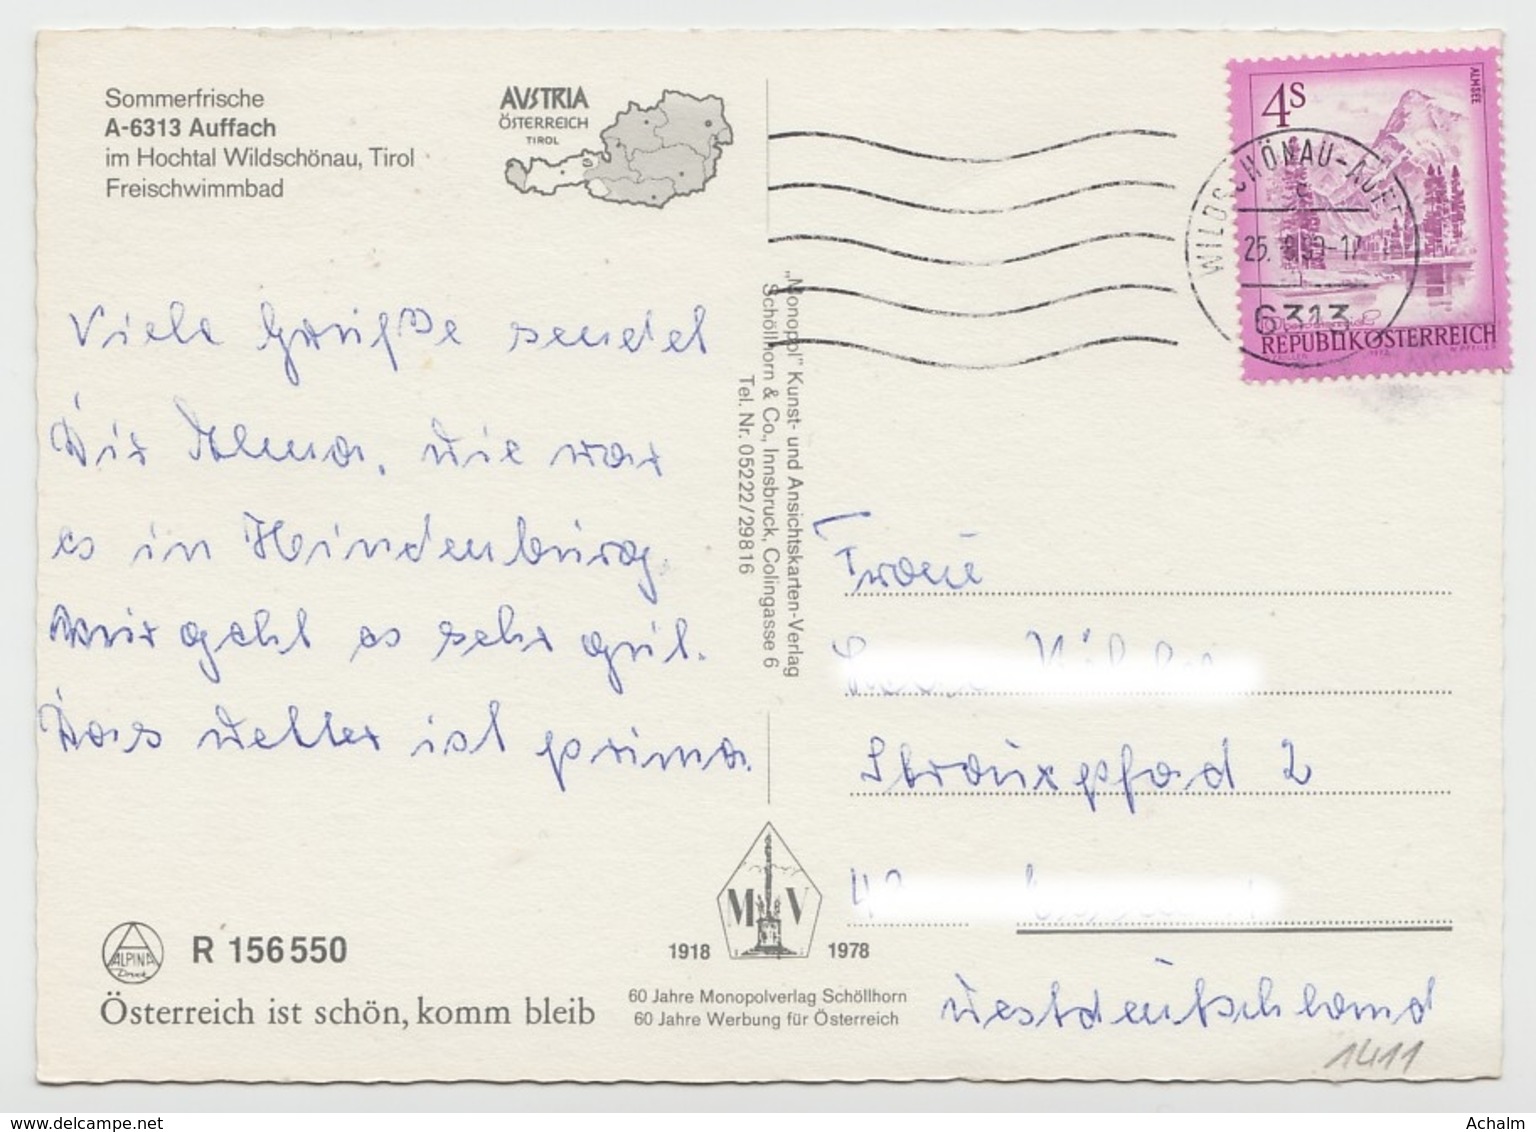 Sommerfrische
A-6313 Auffach
im Hochtal Wildschönau, Tirol
Freischwimmbad
AUSTRIA
ÖSTERREICH
TIROL
4S
ALMSEE
WILDSCHÖNAU-AUFF
6313
REPUBLIK ÖSTERREICH
Viele Grüße sendet
Dir Alma, wie war
es in Hindenburg.
Mir geht es sehr gut.
Das Wetter ist prima.
„Monopol" Kunst- und Ansichtskarten-Verlag
Schöllhorn & Co., Innsbruck, Colingasse 6
Tel. Nr. 05222/29816
Frau
Strauxpfad 2
Westdeutschland
1411
ALPINA
Druck
R 156550
Österreich ist schön, komm bleib
M V
1918 1978
60 Jahre Monopolverlag Schöllhorn
60 Jahre Werbung für Österreich
www.delcampe.net
Achalm